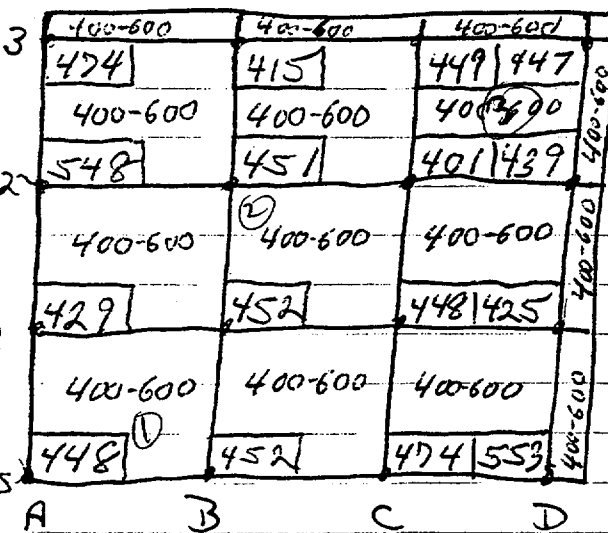 400-600 400-600 400-600
3
474 415 449 447
400-600 400-600 400-600 400-600
③
548 451 401 439
2
②
400-600 400-600 400-600 400-600
429 452 448 425
400-600 400-600 400-600 400-600
①
448 452 474 553
A B C D